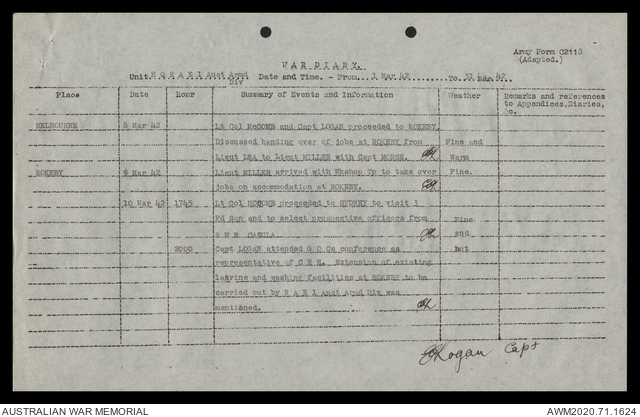 Army Form C2118
(Adapted.)
WAR DIARY.
Unit H Q R A E 1 Aust Armd Div Date and Time. - From... 1 Mar 42 ........To. 31 Mar 42..
Place Date Hour Summary of Events and Information Weather Remarks and references to Appendices, Diaries,
MELBOURNE 8 Mar 42 Lt Col McCOMB and Capt LOGAN proceeded to ROKEBY.
Discussed handing over of jobs at ROKEBY from Fine and
Lieut LEA to Lieut MILLER with Capt MORSE. Warm
ROKEBY 9 Mar 42 Lieut MILLER arrived with Wkshop Tp to take over Fine.
jobs on accommodation at ROKEBY.
10 Mar 42 1745 Lt Col McCOMB proceeded to SYDNEY to visit 3
Fd Sqn and to select prospective officers from Fine
S M E CASULA. and
2000 Capt LOGAN attended G O Cs conference as hot
representative of C R E. Extension of existing
latrine and washing facilities at ROKEBY to be
carried out by R A E 1 Aust Armd Div was
mentioned.
Logan Capt
AUSTRALIAN WAR MEMORIAL AWM2020.71.1624